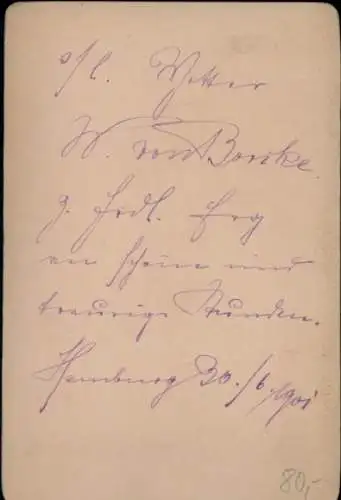 s/l. Vetter
W. von Borcke.
z. frdl. Erg
an schöne und
traurige Stunden.
Hamburg 20./6. 1901
80,-